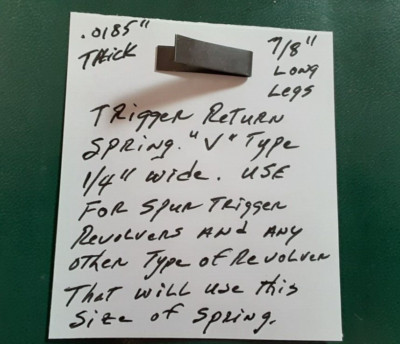 .0185" 7/8"
THICK LONG
LEGS
TRIGGER RETURN
SPRING. "V" TYPE
1/4" WIDE. USE
FOR SPUR TRIGGER
REVOLVERS AND ANY
OTHER TYPE OF REVOLVER
THAT WILL USE THIS
SIZE OF SPRING.